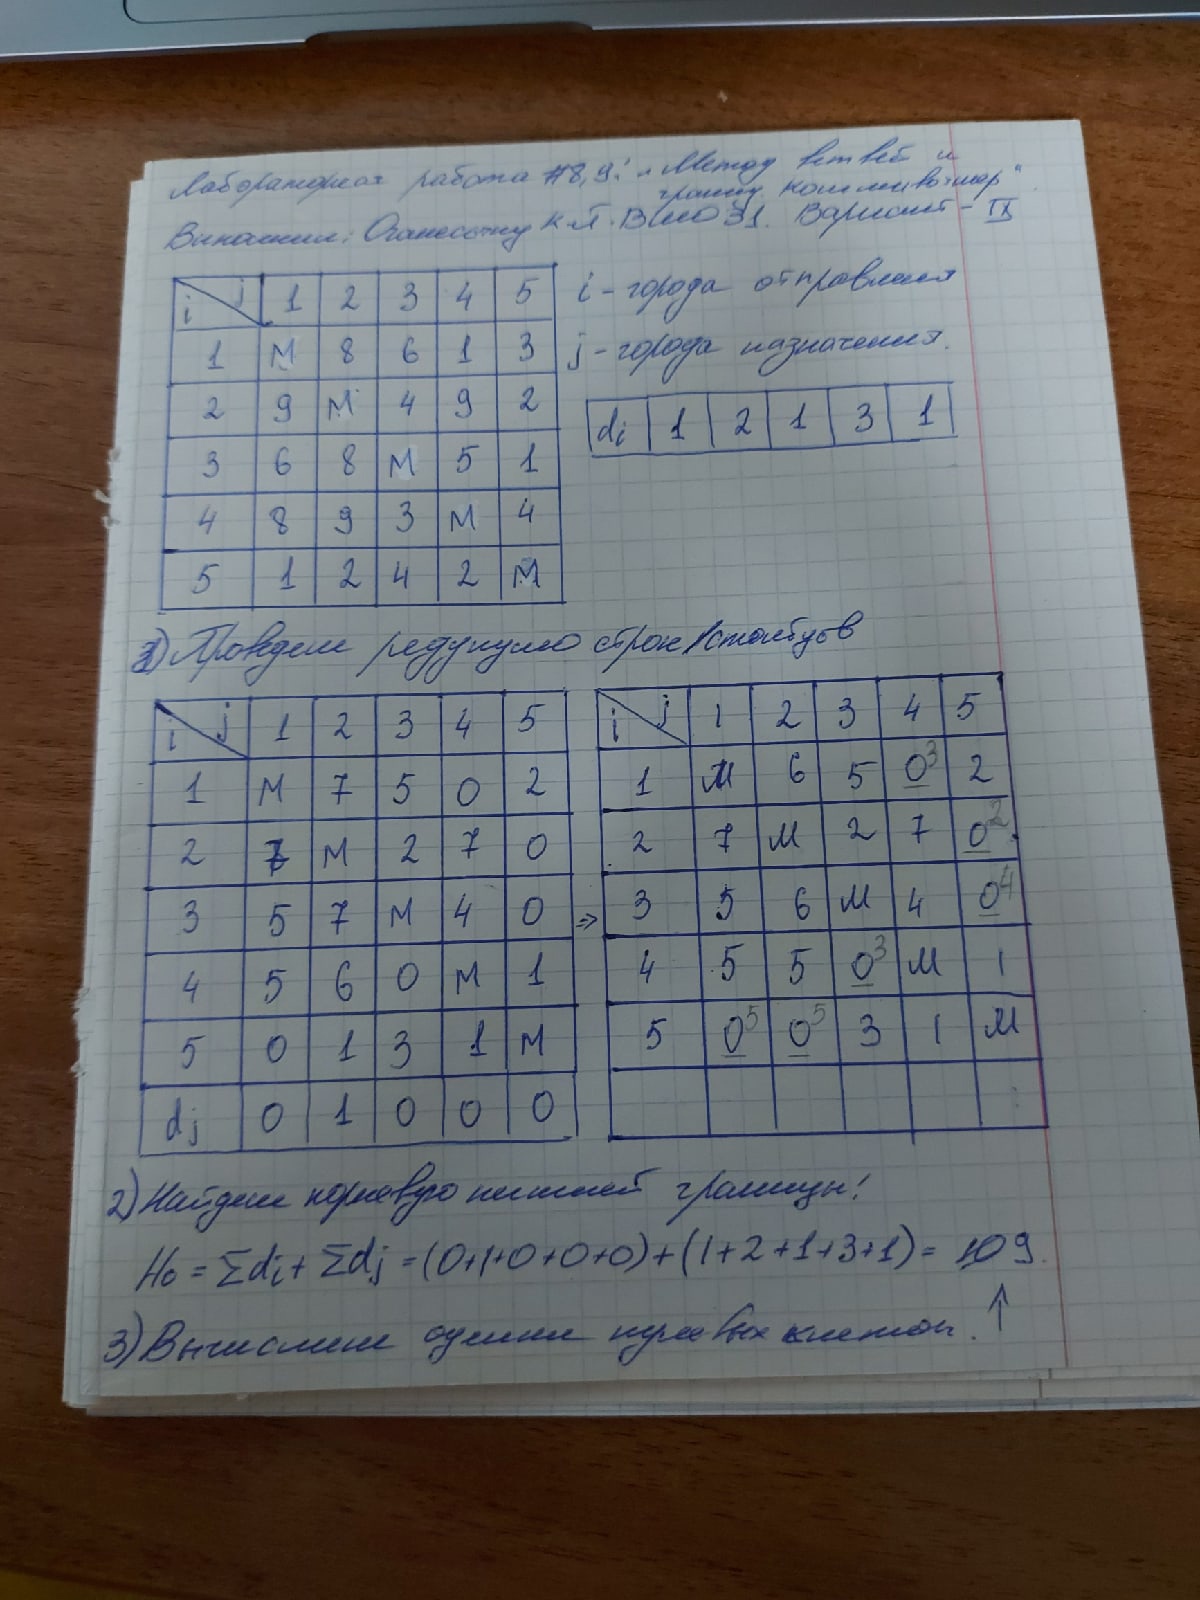 Лабораторная работа #8,9: "Метод ветвей и
границ. Коммивояжер".
Выполнил: К.Т. ВМО 31. Вариант - IX
i j 1 2 3 4 5
1 М 8 6 1 3
2 9 М 4 9 2
3 6 8 М 5 1
4 8 9 3 М 4
5 1 2 4 2 М
i - города отправления
j - города назначения.
di 1 2 1 3 1
1) Проведем редукцию строк/столбцов
i j 1 2 3 4 5
1 М 7 5 0 2
2 7 М 2 7 0
3 5 7 М 4 0
4 5 6 0 М 1
5 0 1 3 1 М
dj 0 1 0 0 0
=>
i j 1 2 3 4 5
1 М 6 5 0³ 2
2 7 М 2 7 0²
3 5 6 М 4 0⁴
4 5 5 0³ М 1
5 0⁵ 0⁵ 3 1 М
2) Найдем корневую нижней границы:
H₀ = Σdi + Σdj = (0+1+0+0+0)+(1+2+1+3+1) = 9.
3) Вычислим оценки нулевых клеток. ↑